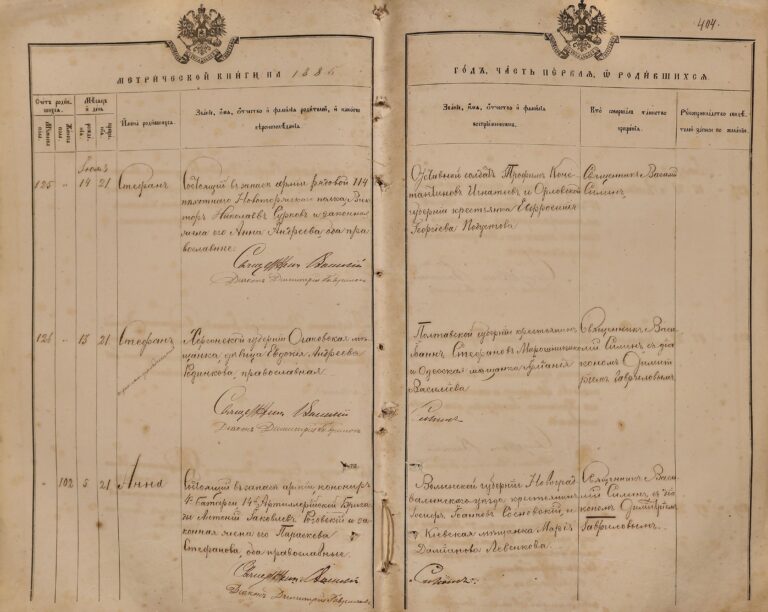 404.
МЕТРИЧЕСКОЙ КНИГИ НА 1886
ГОДЪ, ЧАСТЬ ПЕРВАЯ, Ѡ РОДИВШИХСЯ
Счетъ родив-
шихся.
Мужеска
пола
Женска
пола
Мѣсяцъ
и день
рожде-
нія.
креще-
нія.
Имена родившихся.
Званіе, имя, отчество и фамилія родителей, и какого
вѣроисповѣданія
Званіе, имя, отчество и фамилія
воспріемниковъ.
Кто совершалъ таинство
крещенія.
Рукоприкладство свидѣ-
телей записи по желанію.
125 " 14 21 Стефанъ
Состоящій въ запасѣ арміи рядовой 114
пѣхотнаго Новоторжскаго полка Вик-
торъ Николаевъ и законная
жена его Анна Андреева, оба пра-
вославные.
Священникъ Василій
Діаконъ Димитрій Гавриловъ
Отставной солдатъ Трофимъ Конс-
тантиновъ Игнатіевъ и Орловской
губерніи крестьянка Евфросинія
Георгіева
Священникъ Василій
Силинъ
126 " 13 21 Стефанъ
Херсонской губерніи Очаковская мѣ-
щанка, дѣвица Евдокія Андреева
Родинкова, православная.
Священникъ Василій
Діаконъ Димитрій Гавриловъ
Полтавской губерніи крестьянинъ
Іоаннъ Стефановъ Мирошниченко
и Одесская мѣщанка
Василіева
Силинъ
Священникъ Васи-
лій Силинъ съ діа-
кономъ Димит-
ріемъ Гавриловымъ
" 102 5 21 Анна
Состоящій въ запасѣ арміи канониръ
4й батареи 14й Артиллерійской Брига-
ды Антоній Яковлевъ Роговскій и за-
конная жена его Параскева
Стефанова, оба православные.
Священникъ Василій
Діаконъ Димитрій Гавриловъ
Волынской губерніи Новоград-
волынскаго уѣзда крестьянинъ
Іосифъ Іоанновъ Сосновскій, и
Кіевская мѣщанка Марія
Даміанова Левенкова.
Силинъ
Священникъ Васи-
лій Силинъ съ діа-
кономъ Димитріемъ
Гавриловымъ.